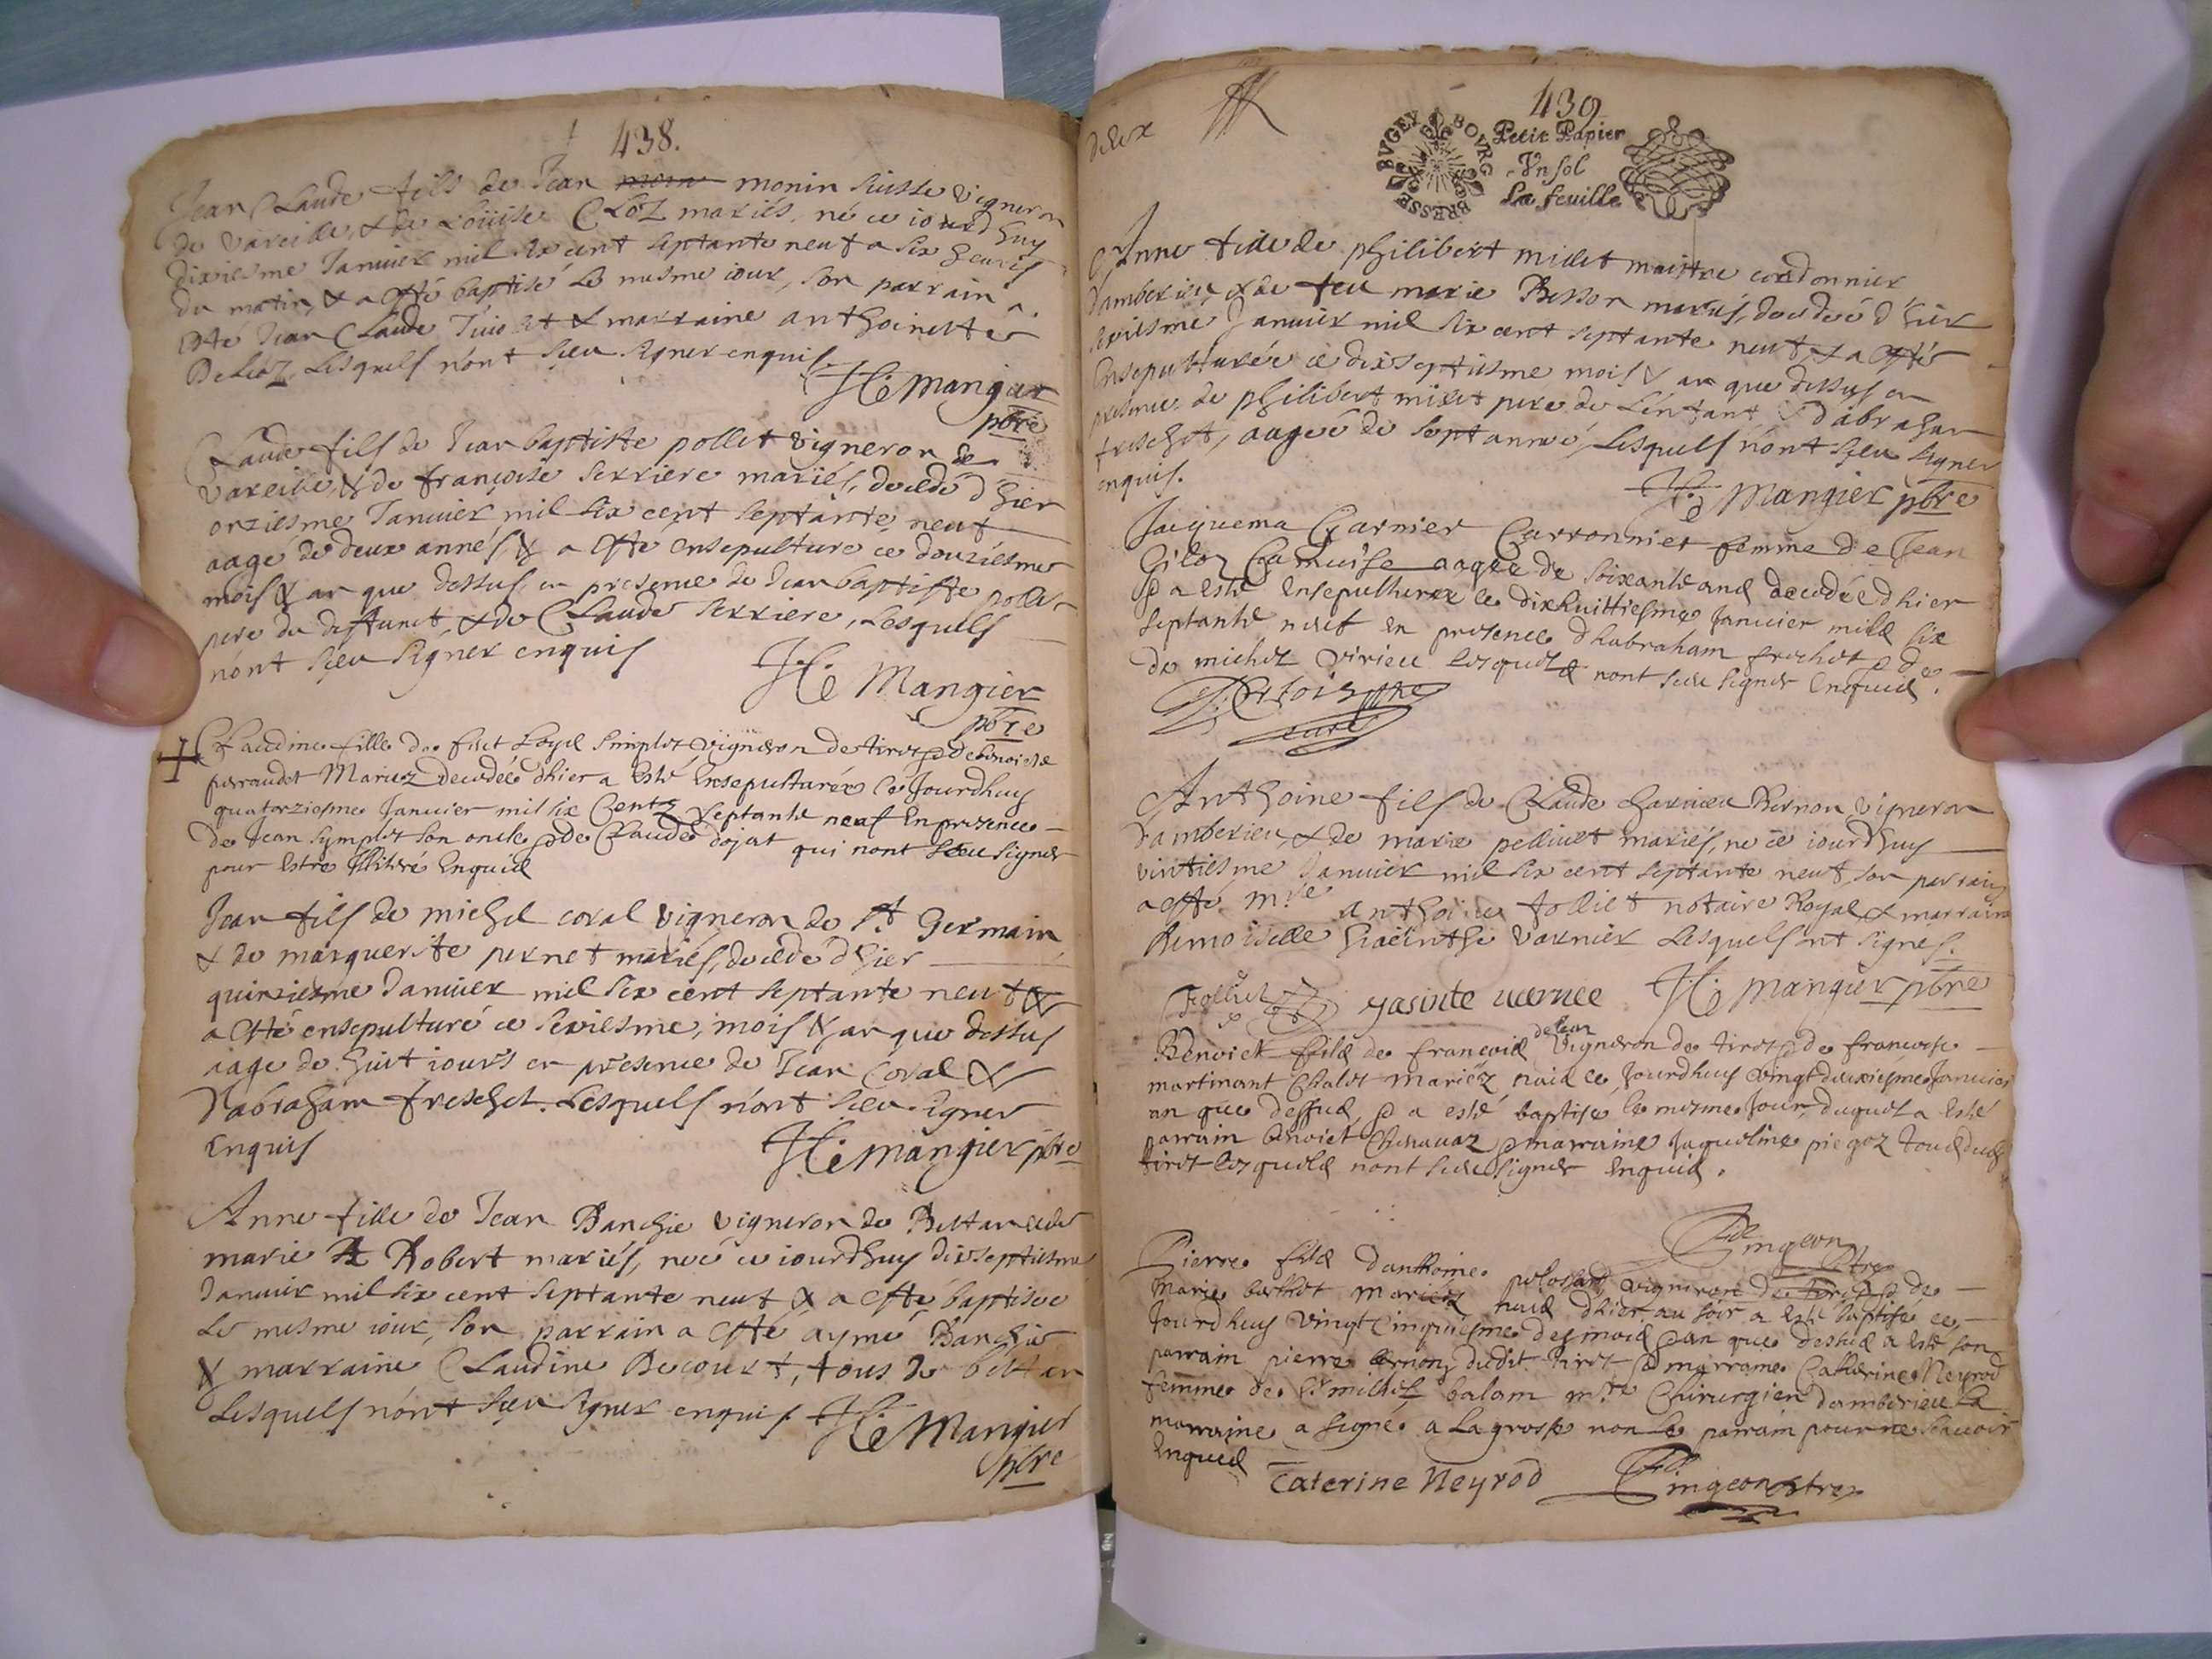 438.
Jean Claude fils de Jean monin suisse vigneron
de vareille, & de Loüise Cloz mariés, né ce iourdhuy
dixiesme Januier mil six cent septante neuf a six heures
du matin, & a esté baptisé le mesme iour, son parrain a
esté Jean Claude & marraine anthoinette
lesquels n'ont sceu signer enquis.
H. Mangier
pbre
Claude fils de Jean baptiste pollet vigneron de
vareille, & de françoise serriere mariés, decedé d'hier
onziesme Januier mil six cent septante neuf
aagé de deux années, & a esté ensepulturé ce douziesme
mois & an que dessus, en presence de Jean baptiste pollet
pere du deffunct, & de Claude serriere, Lesquels
n'ont sceu signer enquis
H. Mangier
pbre
Claudine fille de feu simplet vigneron de tiret & de benoiste
perraudet Mariez decedée dhier a esté Ensepulturée ce Jourdhuy
quatorziesme Januier mil six Centz Septante neuf En presence
de Jean symplet son oncle & de Claude dojat qui nont sceu signer
pour Estre Illitéré Enquis
Jean fils de michel coval vigneron de St Germain
& de marguerite pernet mariés, decedé d'hier
quinziesme Januier mil six cent septante neuf &
a esté ensepulturé ce seziesme, mois & an que dessus
aagé de huit iours en presence de Jean Coval &
d'abraham freschet. Lesquels n'ont sceu signer
Enquis
H. Mangier pbre
Anne fille de Jean Banchie vigneron de Bettan & de
marie Robert mariés, née ce iourdhuy dixseptiesme
Januier mil six cent septante neuf & a esté baptisée
le mesme iour, son parrain a esté aymé Banchie
& marraine Claudine Decourt, tous de bettan
Lesquels n'ont sceu signer enquis. H. Mangier
pbre
deux
439
BVGEY BOVRG BRESSE
Petit Papier
Vn sol
La feuille
Anne fille de philibert millet maistre cordonnier
d'amberieu, & de feu marie Besson mariés, decedée d'hier
seziesme Januier mil six cent septante neuf, & a esté
ensepulturée ce dixseptiesme mois & an que dessus en
presence de philibert millet pere de L'enfant & d'abraham
freschet, aagée de sept année, Lesquels n'ont sceu signer
enquis.
H. Mangier pbre
Jaquema Garnier Carronnier femme de Jean
Gilon aagée de soixante ans decedée dhier
& a esté Ensepulturée ce dixhuittiesme Januier mille six
septante neuf En presence dhabraham frechet & de
de michel virieu lesquels nont sceu signer Enquis.
curé
Anthoine fils de Claude charvieu Bernon vigneron
d'amberieu, & de marie pellivet mariés, né ce iourdhuy
vintiesme Januier mil six cent septante neuf, son parrain
a esté mre anthoine folliet notaire Royal & marraine
demoiselle hiacinthe varnier Lesquels ont signés.
Folliet yasinte uernee H. Mangier pbre
Benoict filz de francois vigneron de tiret & de francoise
martinant Chalet Mariéz naid ce Jourdhuy vingtdeuxiesme Januier
an que dessus, & a esté baptisé le mesme Jour, duquel a esté
parrain benoict & marraine Jaqueline piegoz tous dud
tiret lesquels nont sceu signer Enquis.
Pingeon
pbtre
Pierre filz danthoine pelossard, vigneron de tiret & de
Marie berthet Mariéz naid dhier au soir a esté baptisé ce
Jourdhuy vingt Cinquiesme des mois & an que dessus a esté son
parrain pierre bernon dudit tiret & marraine Catherine Neyrod
femme de Sr balam mre Chirurgien damberieu la
marraine a signé a la grosse non le parrain pour ne scauoir
Enquis
Caterine Neyrod Pingeon pbtre